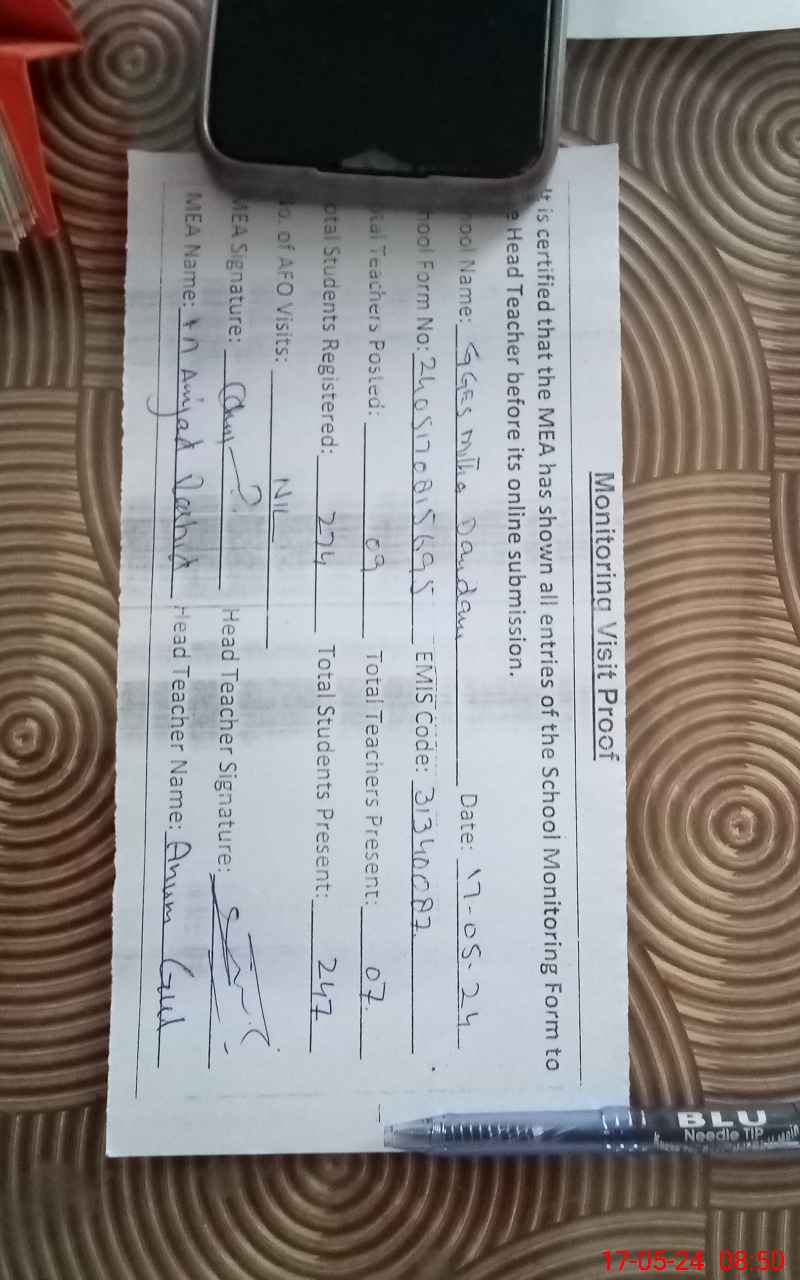 Monitoring Visit Proof
It is certified that the MEA has shown all entries of the School Monitoring Form to
e Head Teacher before its online submission.
hool Name: GGES Mitha Dandam Date: 17-05-24
hool Form No: EMIS Code: 31340087
tal Teachers Posted: 09 Total Teachers Present: 07
otal Students Registered: 274 Total Students Present: 247
o. of AFO Visits: NIL
MEA Signature: Head Teacher Signature:
MEA Name: Amjad Head Teacher Name: Anum Gul
BLU
Needle TIP
17-05-24 08:50